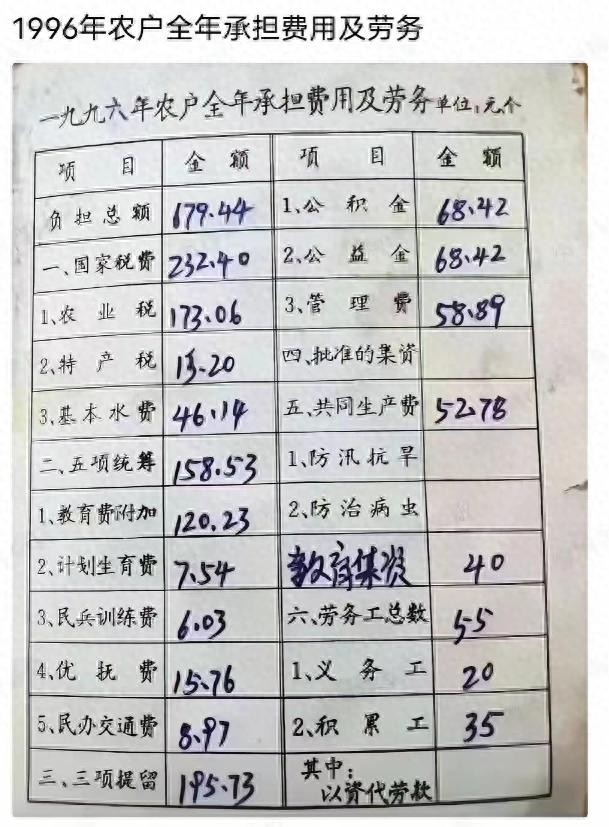 1996年农户全年承担费用及劳务
一九九六年农户全年承担费用及劳务 单位:元、个
项 目 金 额 项 目 金 额
负担总额 679.44 1、公积金 68.42
一、国家税费 232.40 2、公益金 68.42
1、农业税 173.06 3、管理费 58.89
2、特产税 13.20 四、批准的集资
3、基本水费 46.14 五、共同生产费 52.78
二、五项统筹 158.53 1、防汛抗旱
1、教育费附加 120.23 2、防治病虫
2、计划生育费 7.54 教育集资 40
3、民兵训练费 6.03 六、劳务工总数 55
4、优抚费 15.76 1、义务工 20
5、民办交通费 8.97 2、积累工 35
三、三项提留 195.73 其中:
以资代劳款